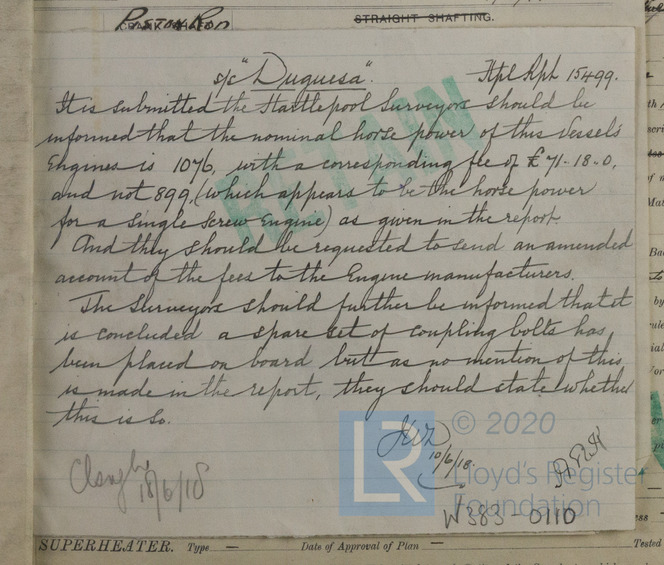 Piston Rod
STRAIGHT SHAFTING.
s/s "Duquesa". Hpl Rpt 15499.
It is submitted the Hartlepool Surveyors should be
informed that the nominal horse power of this Vessel's
Engines is 1076, with a corresponding fee of £71-18-0,
and not 899, (which appears to be the horse power
for a Single Screw Engine) as given in the report.
And they should be requested to send an amended
account of the fees to the Engine manufacturers.
The Surveyors should further be informed that it
is concluded a spare set of coupling bolts has
been placed on board but as no mention of this
is made in the report, they should state whether
this is so.
10/6/18.
18/6/18
RETAIN
© 2020
LR
Lloyd's Register
Foundation
W383-0110
SUPERHEATER. Type — Date of Approval of Plan — Tested